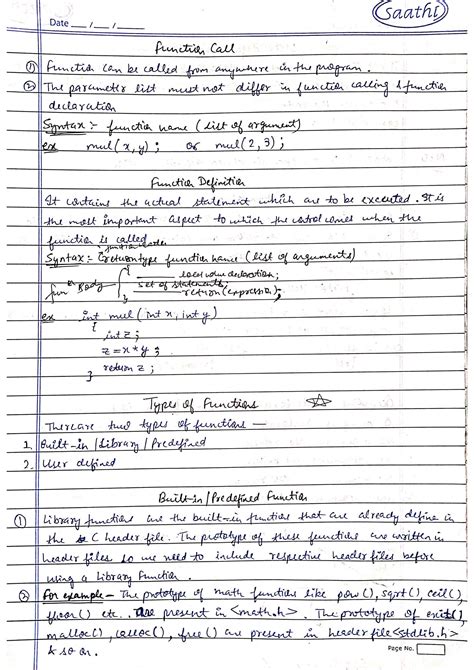 Saathi
Date ___ / ___ / ___
Function Call
① Function can be called from anywhere in the program.
② The parameter list must not differ in function calling & function
declaration
Syntax :- function name (list of argument)
ex mul(x,y); or mul(2,3);
Function Definition
It contains the actual statement which are to be executed. It is
the most important aspect to which the control comes when the
function is called
function header
Syntax :- returntype function name (list of arguments)
{ local var declaration;
fun Body set of statements;
return(expression); }
ex int mul(int x, int y)
{
int z;
z = x * y;
return z;
}
Types of Functions
There are two types of functions —
1. Built-in / Library / Predefined
2. User defined
Built-in / Predefined Function
① Library functions are the built-in functions that are already define in
the C header file. The prototype of these functions are written in
header files so we need to include respective header files before
using a Library Function.
② For example - The prototype of math functions like pow(), sqrt(), ceil(),
floor() etc. are present in <math.h>. The prototype of exit(),
malloc(), calloc(), free() are present in header file <stdlib.h>
& so on.
Page No.